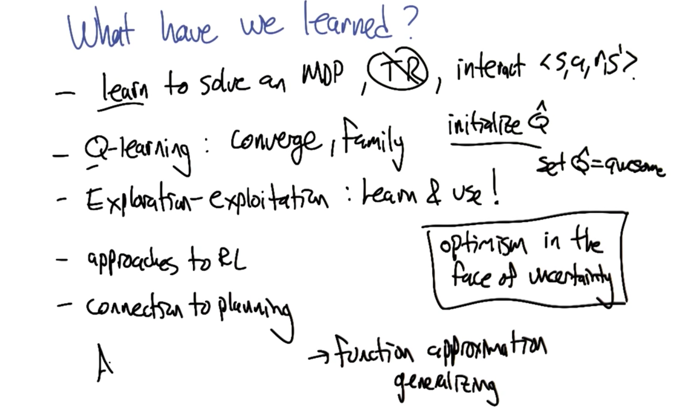 What have we learned?
- learn to solve an MDP, TR, interact <s,a,r,s'>
- Q-learning: converge, family
initialize Q̂
set Q̂=awesome
- Exploration-exploitation: Learn & use!
optimism in the
face of uncertainty
- approaches to RL
- connection to planning
→ function approximation
generalizing
A